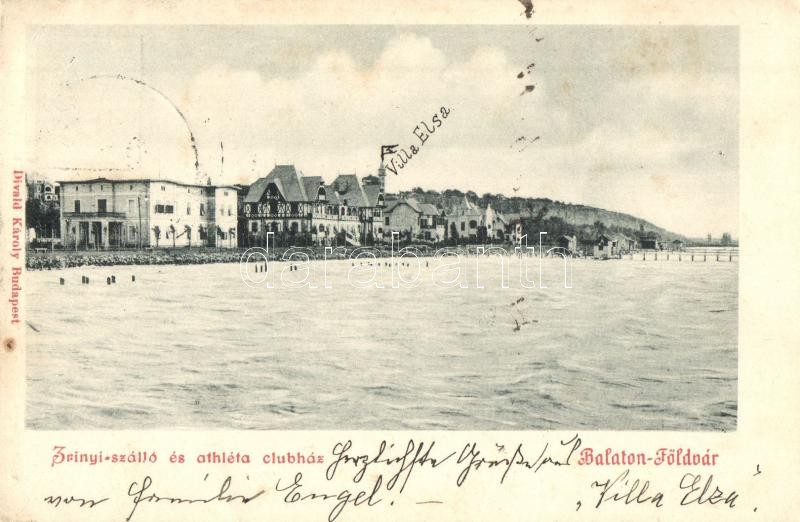 Villa Elsa
darabanth
Divald Károly Budapest
Zrinyi-szálló és athléta clubház Herzlichste Grüsse aus Balaton-Földvár
von Familie Engel. — „Villa Elza"